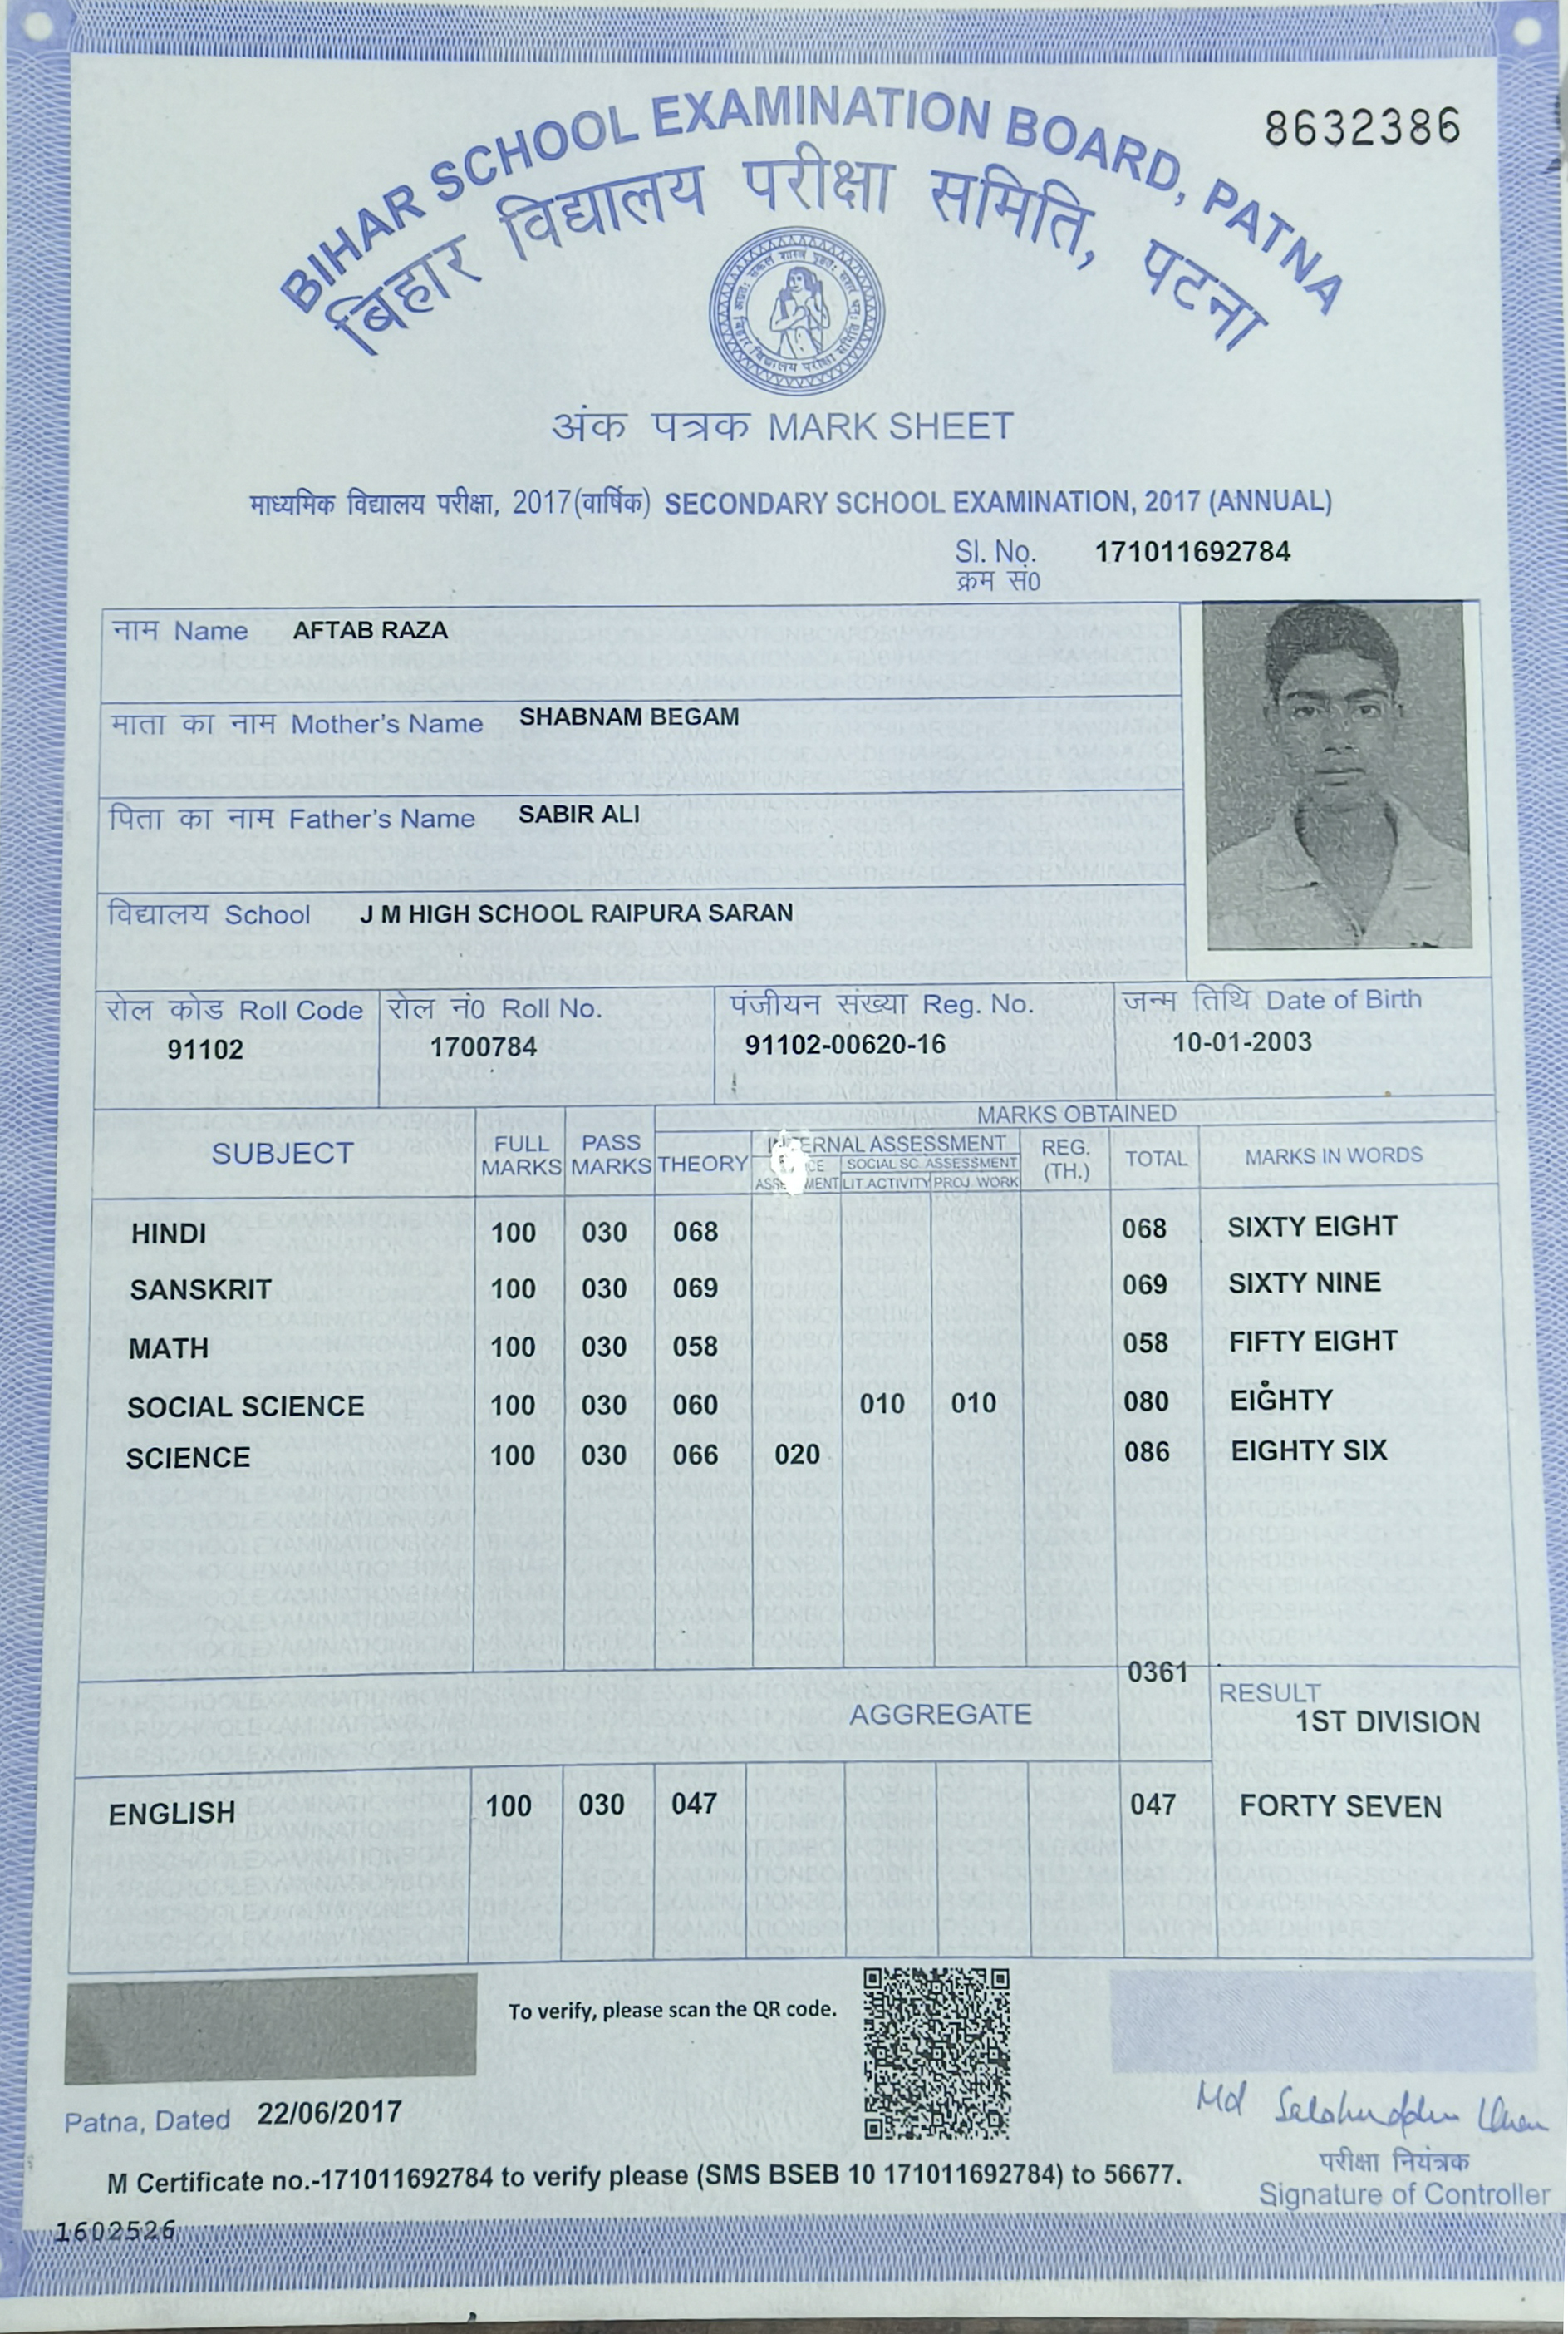 8632386
BIHAR SCHOOL EXAMINATION BOARD, PATNA
बिहार विद्यालय परीक्षा समिति, पटना
अंक पत्रक MARK SHEET
माध्यमिक विद्यालय परीक्षा, 2017(वार्षिक) SECONDARY SCHOOL EXAMINATION, 2017 (ANNUAL)
Sl. No. 171011692784
क्रम सं0
नाम Name AFTAB RAZA
माता का नाम Mother's Name SHABNAM BEGAM
पिता का नाम Father's Name SABIR ALI
विद्यालय School J M HIGH SCHOOL RAIPURA SARAN
रोल कोड Roll Code रोल नं0 Roll No. पंजीयन संख्या Reg. No. जन्म तिथि Date of Birth
91102 1700784 91102-00620-16 10-01-2003
MARKS OBTAINED
SUBJECT FULL MARKS PASS MARKS THEORY ASSESSMENT REG. (TH.) TOTAL MARKS IN WORDS
SOCIAL SC. ASSESSMENT
LIT ACTIVITY PROJ. WORK
HINDI 100 030 068 068 SIXTY EIGHT
SANSKRIT 100 030 069 069 SIXTY NINE
MATH 100 030 058 058 FIFTY EIGHT
SOCIAL SCIENCE 100 030 060 010 010 080 EIGHTY
SCIENCE 100 030 066 020 086 EIGHTY SIX
0361
AGGREGATE RESULT
1ST DIVISION
ENGLISH 100 030 047 047 FORTY SEVEN
To verify, please scan the QR code.
Patna, Dated 22/06/2017
Md
परीक्षा नियंत्रक
Signature of Controller
M Certificate no.-171011692784 to verify please (SMS BSEB 10 171011692784) to 56677.
1602526